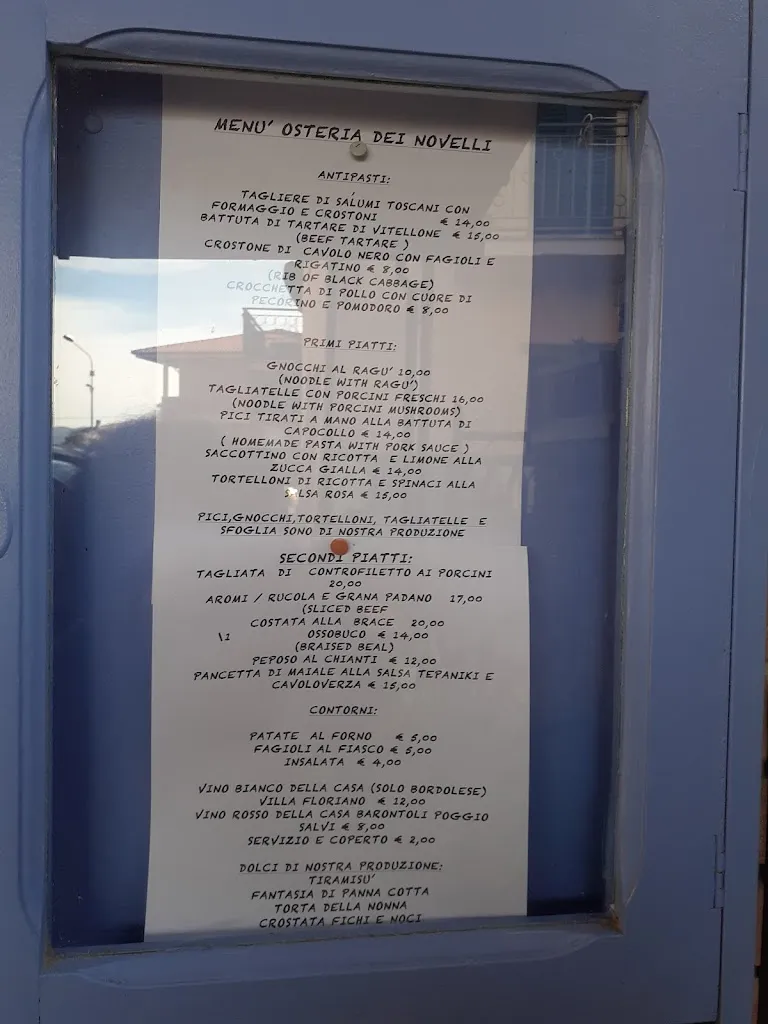 MENU' OSTERIA DEI NOVELLI
ANTIPASTI:
TAGLIERE DI SALUMI TOSCANI CON
FORMAGGIO E CROSTONI € 14,00
BATTUTA DI TARTARE DI VITELLONE € 15,00
(BEEF TARTARE )
CROSTONE DI CAVOLO NERO CON FAGIOLI E
RIGATINO € 8,00
(RIB OF BLACK CABBAGE)
CROCCHETTA DI POLLO CON CUORE DI
PECORINO E POMODORO € 8,00
PRIMI PIATTI:
GNOCCHI AL RAGU' 10,00
(NOODLE WITH RAGU')
TAGLIATELLE CON PORCINI FRESCHI 16,00
(NOODLE WITH PORCINI MUSHROOMS)
PICI TIRATI A MANO ALLA BATTUTA DI
CAPOCOLLO € 14,00
( HOMEMADE PASTA WITH PORK SAUCE )
SACCOTTINO CON RICOTTA E LIMONE ALLA
ZUCCA GIALLA € 14,00
TORTELLONI DI RICOTTA E SPINACI ALLA
SALSA ROSA € 15,00
PICI,GNOCCHI,TORTELLONI, TAGLIATELLE E
SFOGLIA SONO DI NOSTRA PRODUZIONE
SECONDI PIATTI:
TAGLIATA DI CONTROFILETTO AI PORCINI
20,00
AROMI / RUCOLA E GRANA PADANO 17,00
(SLICED BEEF
COSTATA ALLA BRACE 20,00
\1 OSSOBUCO € 14,00
(BRAISED BEAL)
PEPOSO AL CHIANTI € 12,00
PANCETTA DI MAIALE ALLA SALSA TEPANIKI E
CAVOLOVERZA € 15,00
CONTORNI:
PATATE AL FORNO € 5,00
FAGIOLI AL FIASCO € 5,00
INSALATA € 4,00
VINO BIANCO DELLA CASA (SOLO BORDOLESE)
VILLA FLORIANO € 12,00
VINO ROSSO DELLA CASA BARONTOLI POGGIO
SALVI € 8,00
SERVIZIO E COPERTO € 2,00
DOLCI DI NOSTRA PRODUZIONE:
TIRAMISU'
FANTASIA DI PANNA COTTA
TORTA DELLA NONNA
CROSTATA FICHI E NOCI